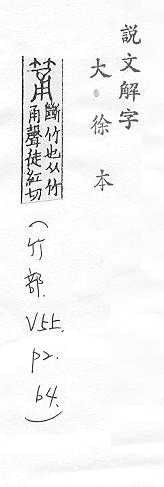 說文解字
大・徐本
筩 斷竹也从竹
甬聲徒紅切
(竹部. V5上. P2. b4.)